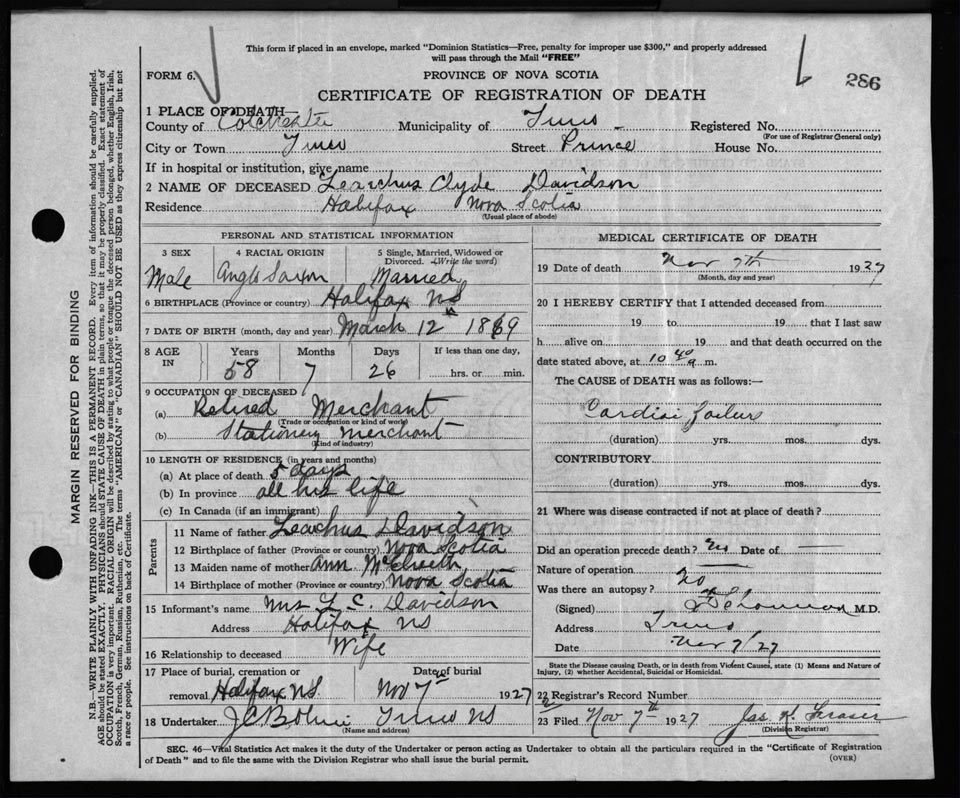 This form if placed in an envelope, marked "Dominion Statistics—Free, penalty for improper use $300," and properly addressed
will pass through the Mail "FREE"
FORM 6.
PROVINCE OF NOVA SCOTIA
286
CERTIFICATE OF REGISTRATION OF DEATH
1 PLACE OF DEATH—
County of Colchester Municipality of Truro Registered No.
(For use of Registrar General only)
City or Town Truro Street Prince House No.
If in hospital or institution, give name
2 NAME OF DECEASED Learchus Clyde Davidson
Residence Halifax Nova Scotia
(Usual place of abode)
PERSONAL AND STATISTICAL INFORMATION
3 SEX 4 RACIAL ORIGIN 5 Single, Married, Widowed or Divorced. (Write the word)
Male Anglo Saxon Married
6 BIRTHPLACE (Province or country) Halifax NS
7 DATE OF BIRTH (month, day and year) March 12th 1869
8 AGE IN Years Months Days If less than one day,
58 7 26 hrs. or min.
9 OCCUPATION OF DECEASED
(a) Retired Merchant
(Trade or occupation or kind of work)
(b) Stationery Merchant
(Kind of industry)
10 LENGTH OF RESIDENCE (in years and months)
(a) At place of death 5 days
(b) In province all his life
(c) In Canada (if an immigrant)
Parents
11 Name of father Learchus Davidson
12 Birthplace of father (Province or country) Nova Scotia
13 Maiden name of mother Ann
14 Birthplace of mother (Province or country) Nova Scotia
15 Informant's name Mrs L C. Davidson
Address Halifax NS
16 Relationship to deceased Wife
17 Place of burial, cremation or removal Halifax NS Date of burial Nov 7th 1927
18 Undertaker Truro NS
(Name and address)
MEDICAL CERTIFICATE OF DEATH
19 Date of death Nov 7th 1927
(Month, day and year)
20 I HEREBY CERTIFY that I attended deceased from
19 to 19 that I last saw
h alive on 19 and that death occurred on the
date stated above, at 10 40 a m.
The CAUSE OF DEATH was as follows:—
Cardiac failure
(duration) yrs. mos. dys.
CONTRIBUTORY
(duration) yrs. mos. dys.
21 Where was disease contracted if not at place of death?
Did an operation precede death? Date of
Nature of operation
Was there an autopsy? No
(Signed) M.D.
Address Truro
Date Nov 7/27
State the Disease causing Death, or in death from Violent Causes, state (1) Means and Nature of
Injury, (2) whether Accidental, Suicidal or Homicidal.
22 Registrar's Record Number
23 Filed Nov 7th 1927 Jas. Fraser
(Division Registrar)
SEC. 46—Vital Statistics Act makes it the duty of the Undertaker or person acting as Undertaker to obtain all the particulars required in the "Certificate of Registration
of Death" and to file the same with the Division Registrar who shall issue the burial permit.
(OVER)
MARGIN RESERVED FOR BINDING
N.B.—WRITE PLAINLY WITH UNFADING INK—THIS IS A PERMANENT RECORD. Every item of information should be carefully supplied.
AGE should be stated EXACTLY. PHYSICIANS should STATE CAUSE OF DEATH in plain terms, so that it may be properly classified. Exact statement of
OCCUPATION is very important. RACIAL ORIGIN will be described by stating to what people or tongue the deceased person belonged, whether English, Irish,
Scotch, French, German, Russian, Ruthenian, etc. The terms "AMERICAN" or "CANADIAN" SHOULD NOT BE USED as they express citizenship but not
a race or people. See instructions on back of Certificate.